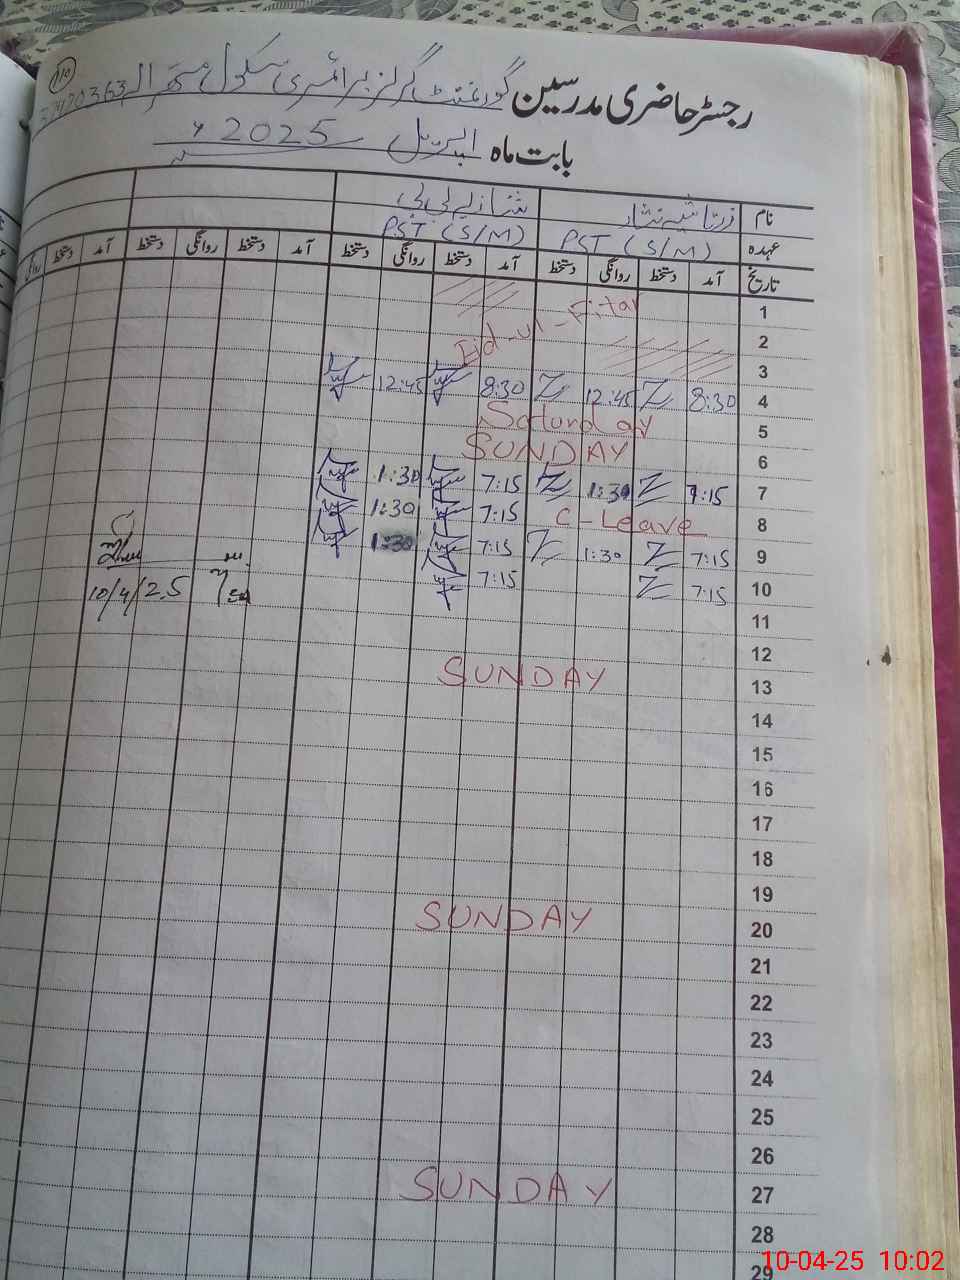 110
رجسٹر حاضری مدرسین گورنمنٹ گرلز پرائمری سکول
بابت ماہ اپریل 2025ء
نام نثار شازیہ بی بی
عہدہ PST (S/M) PST (S/M)
تاریخ آمد دستخط روانگی دستخط آمد دستخط روانگی دستخط آمد دستخط روانگی دستخط آمد دستخط روانگی
1
2 Eid-ul-Fitar
3
4 8:30 12:45 8:30 12:45
5 Saturday
6 SUNDAY
7 7:15 1:30 7:15 1:30
8 C-Leave 7:15 1:30
9 7:15 1:30 7:15 1:30
10 7:15 7:15 10/4/25
11
12
13 SUNDAY
14
15
16
17
18
19
20 SUNDAY
21
22
23
24
25
26
27 SUNDAY
28
29
10-04-25 10:02